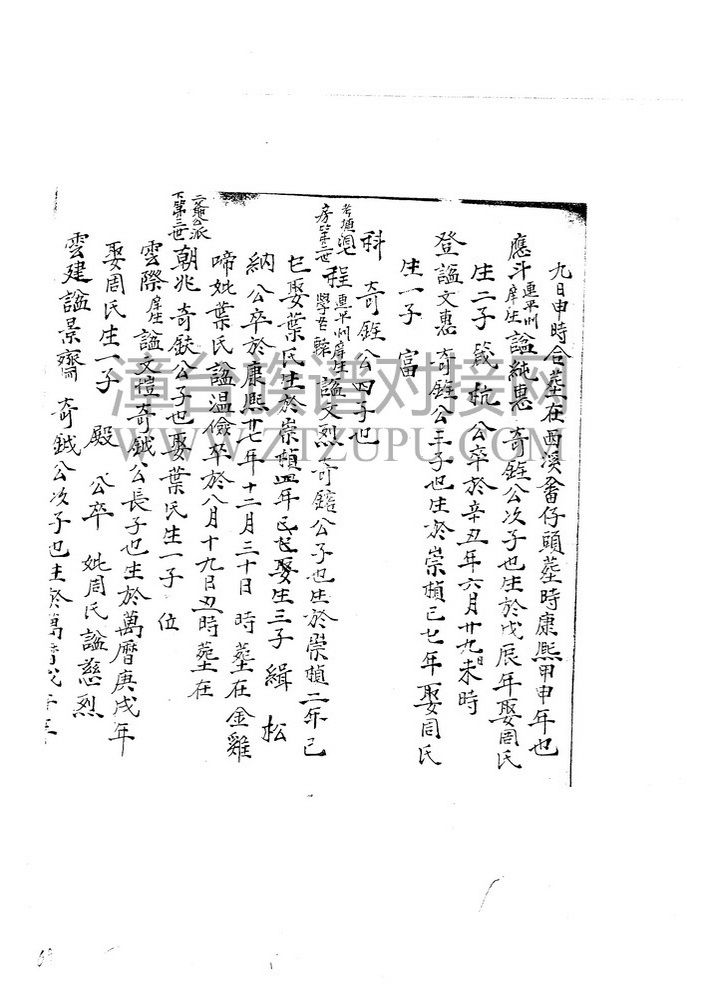 九日申時合塟在西溪畬仔頭塟時康熙甲申年也
應斗連平州庠生諡純惠 奇銓公次子也生於戊辰年娶周氏
生二子 箴 杭 公卒於辛丑年六月廿九日未時
登諡文惠 奇銓公三子也生於崇禎己七年娶周氏
生一子 富
科 奇銓公四子也
房第十二世 程連平州庠生學名驊諡文烈 奇鎔公子也生於崇禎二年己
巳娶葉氏生於崇禎四年 娶生三子 緝 松
納 公卒於康熙廿七年十二月三十日 時塟在金雞
啼妣葉氏諡温儉卒於八月十九日丑時塟在
下第十三世 朝兆 奇鈇公子也娶葉氏生一子 位
雲際庠生諡文愷 奇鉞公長子也生於萬曆庚戌年
娶周氏生一子 殿 公卒 妣周氏諡慈烈
雲建諡景齋 奇鉞公次子也生於萬
漳台族谱对接网
WWW.ZTZUPU.COM